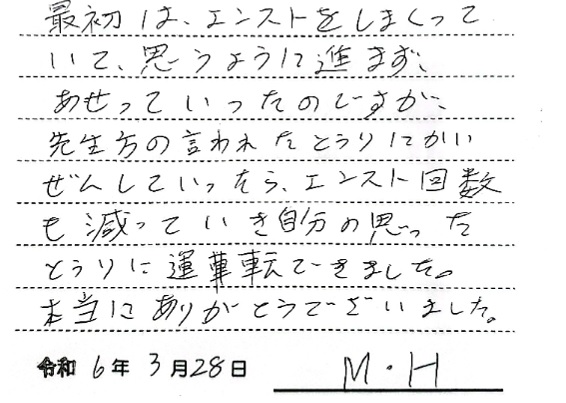 最初は、エンストをしまくって
いて、思うように進まず、
あせっていったのですが、
先生方の言われたとうりにかい
ぜんしていったら、エンスト回数
も減っていき自分の思った
とうりに運転できました。
本当にありがとうございました。
令和 6年 3月28日 M・H